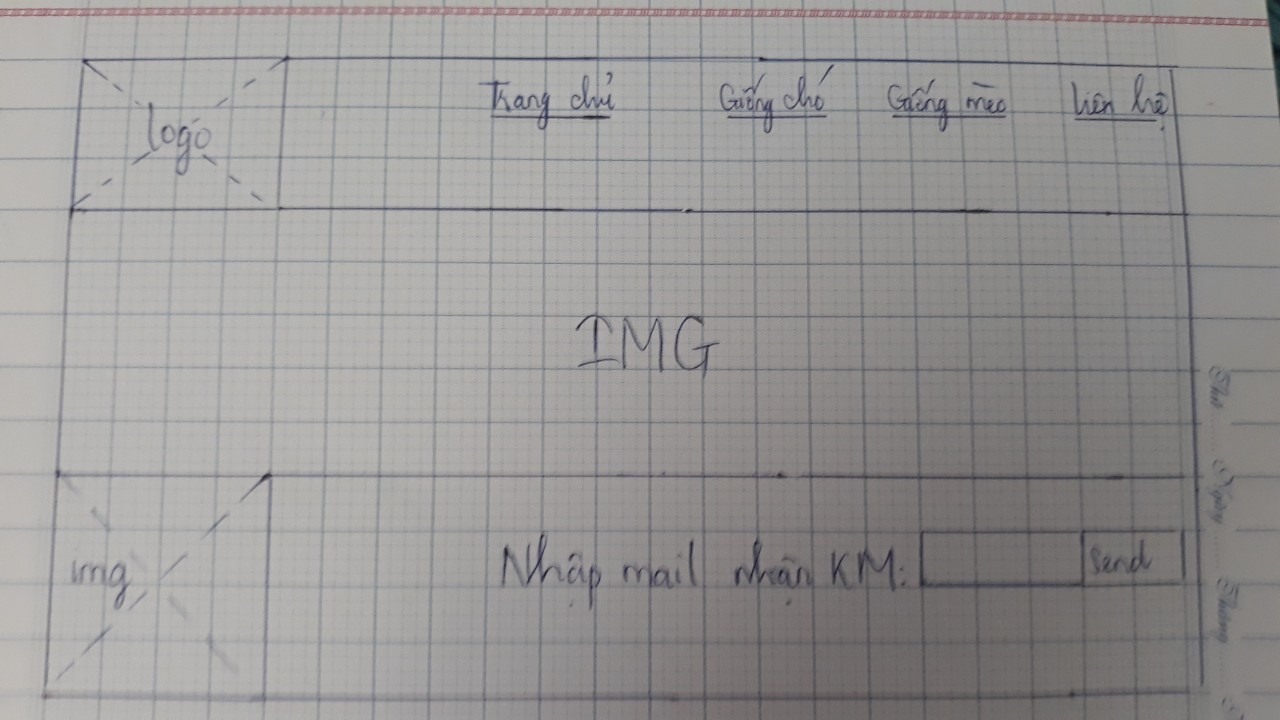 logo
Trang chủ Giống chó Giống mèo Liên hệ
IMG
img Nhập mail nhận KM: Send
Thứ
Ngày
Tháng